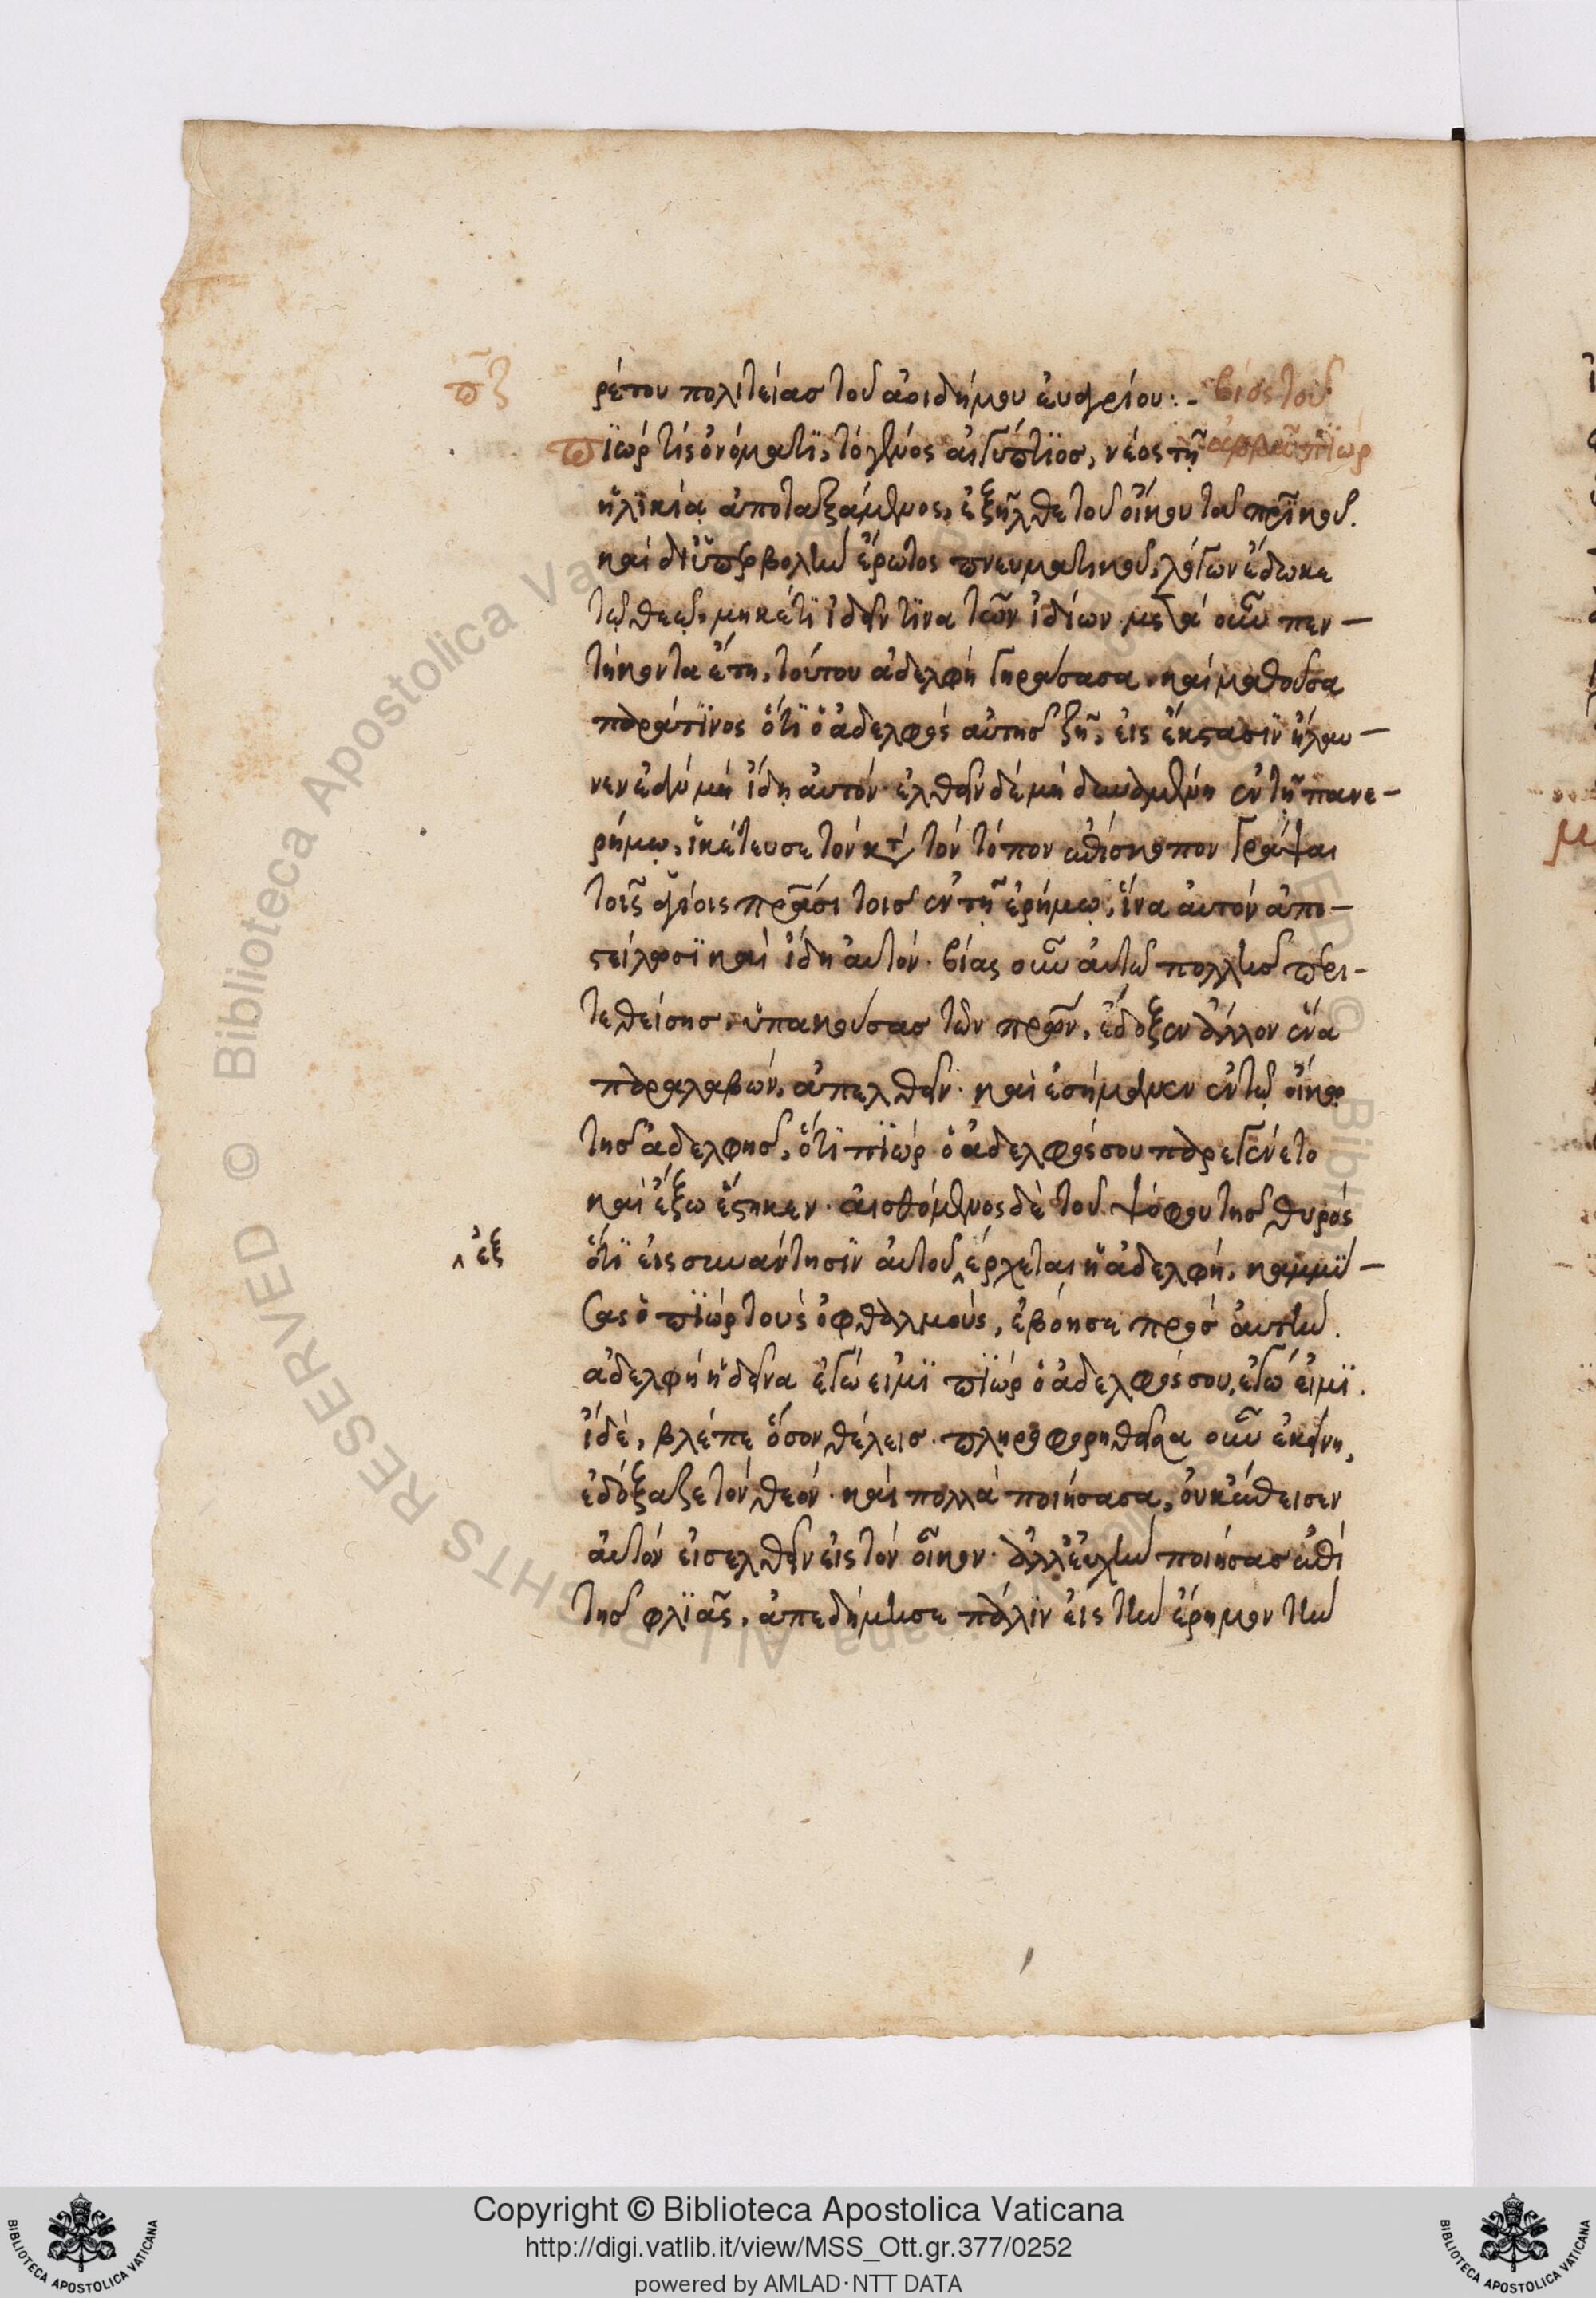 π̅ζ
ρέτου πολιτείας τοῦ ἀοιδήμου ἐυαγρίου:- βίος τοῦ
Πϊώρ τίς ὀνόματϊ, τὸ γένος αἰγύπτϊος, νέος τῇ ἀββᾶ πϊώρ
ἡλικίᾳ ἀποταξάμενος, ἐξῆλθε τοῦ οἴκου τοῦ πρ̅ικοῦ.
καὶ δι ὑπερβολὴν ἔρωτος πνευματικοῦ, λόγον ἔδωκε
τῷ θεῷ, μηκέτϊ ἰδεῖν τϊνα τῶν ἰδίων. μετὰ οὖν πεν-
τήκοντα ἔτη, τούτου ἀδελφὴ γηράσασα, καὶ μαθοῦσα
παρά τϊνος ὅτϊ ὁ ἀδελφός αὐτῆς ζῇ, εἰς ἔκστασϊν ἤλαυ-
νεν εἰ μὴ ἴδῃ ἀυτόν. ἐλθεῖν δὲ μὴ δυναμένη ἐν τῇ πανε-
ρήμῳ, ἱκέτευσε τὸν κατὰ τὸν τόπον ἐπίσκοπον γράψαι
τοῖς ἁγίοις πρ̅άσι τοῖς ἐν τῇ ἐρήμῳ, ἵνα ἀυτὸν ἀπο-
στείλωσϊ καὶ ἴδη ἀυτόν. βίας οὖν ἀυτῷ πολλῆς περι-
τεθείσης, ὑπακούσας τῶν πρ̅ων, ἔδοξεν ἄλλον ἕνα
παραλαβών, ἀπελθεῖν. καὶ ἐσήμανεν ἐν τῷ οἴκῳ
τῆς ἀδελφῆς, ὅτϊ πϊώρ ὁ ἀδελφός σου παρεγένετο
καὶ ἔξω ἕστηκεν. αἰσθόμενος δὲ τοῦ ψόφου τῆς θυρός
^ ἐξ
ὅτϊ εἰς συνάντησϊν ἀυτοῦ ^ ἔρχεται ἡ ἀδελφή, καμμύ-
σας ὁ πϊώρ τοὺς ὀφθαλμούς, ἐβόησε πρὸς ἀυτήν.
ἀδελφὴ ἡ δεῖνα ἐγώ εἰμϊ πϊώρ ὁ ἀδελφός σου, ἐγώ εἰμϊ.
ἰδέ, βλέπε ὅσον θέλεις. πληροφορηθεῖσα οὖν ἐκείνη,
ἐδόξαζε τὸν θεόν. καὶ πολλὰ ποιήσασα, ὀυκ ἔπεισεν
ἀυτὸν εἰσελθεῖν εἰς τὸν οἶκον. ἀλλ ἐυχὴν ποιήσας ἐπὶ
τῆς φλϊᾶς, ἀπεδήμησε πάλιν εἰς τὴν ἔρημον τὴν
Copyright © Biblioteca Apostolica Vaticana
http://digi.vatlib.it/view/MSS_Ott.gr.377/0252
powered by AMLAD·NTT DATA